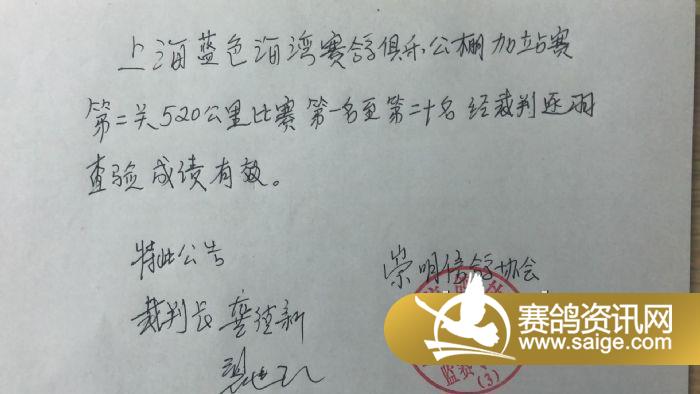 上海蓝色海湾赛鸽俱乐公棚加站赛
第二关520公里比赛第一名至第二十名经裁判逐羽
查验成绩有效。
特此公告
崇明信鸽协会
裁判长 龚德新
监赛
(3)
赛鸽资讯网
www.saige.com